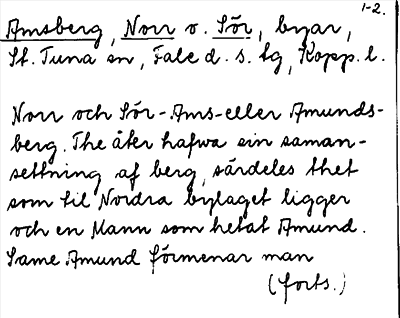 1-2.
Amsberg, Norr o. Sör, byar,
St. Tuna sn, Fale d. s. tg, Kopp. l.
Norr och Sör-Ams-eller Amunds-
berg. The åter hafwa sin saman-
settning af berg, särdeles thet
som til Nordra bylaget ligger
och en Mann som hetat Amund.
Same Amund förmenar man
(forts.)